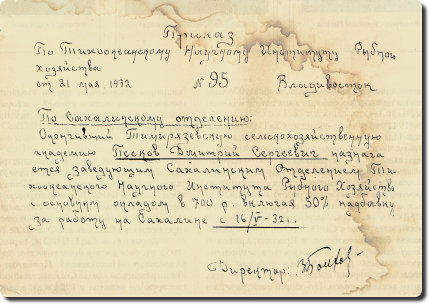 Приказ
По Тихоокеанскому Научному Институту Рыбного
хозяйства
от 21 мая, 1932 № 95 Владивосток
По Сахалинскому отделению:
Окончивший Тимирязевскую сельскохозяйственную
академию Песков Дмитрий Сергеевич назнача
ется заведующим Сахалинским Отделением Ти-
хоокеанского Научного Института Рыбного Хозяйства
с основным окладом в 700 р. включая 50% надбавку
за работу на Сахалине с 16/V-32 г.
Директор: